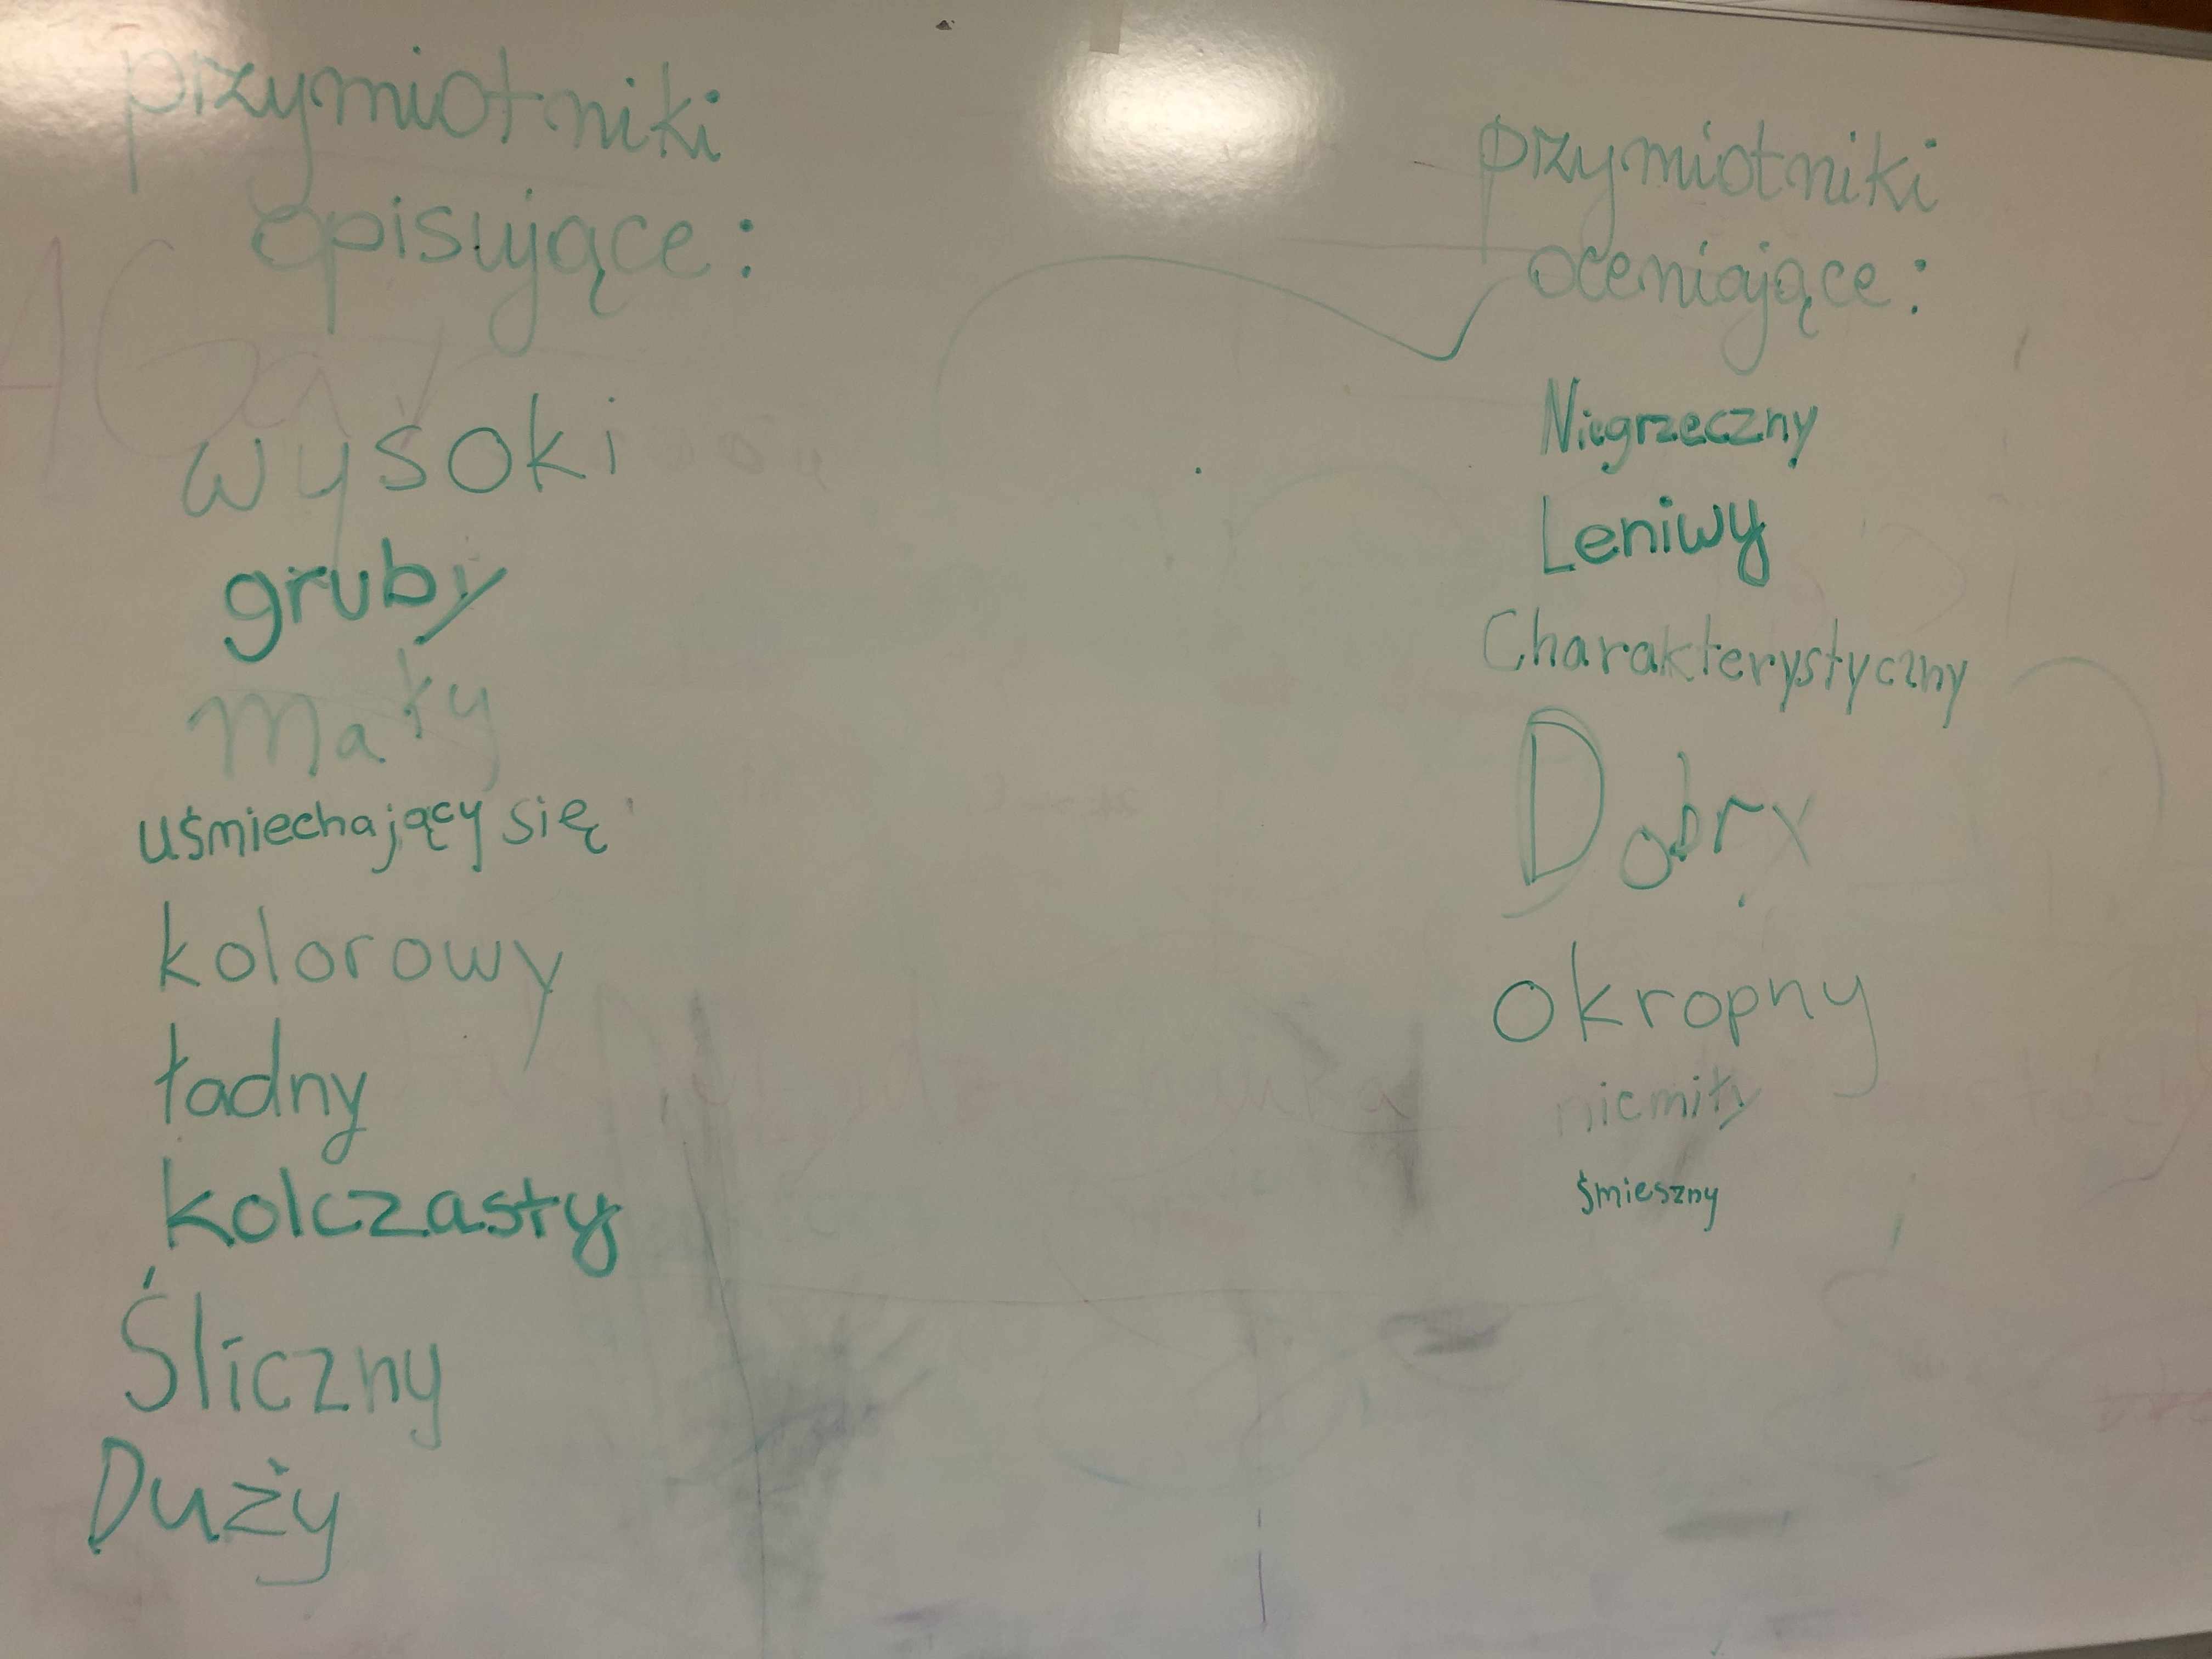 przymiotniki
opisujące:
wysoki
gruby
mały
uśmiechający się
kolorowy
ładny
kolczasty
Śliczny
Duży
przymiotniki
oceniające:
Niegrzeczny
Leniwy
Charakterystyczny
Dobry
okropny
niemiły
śmieszny